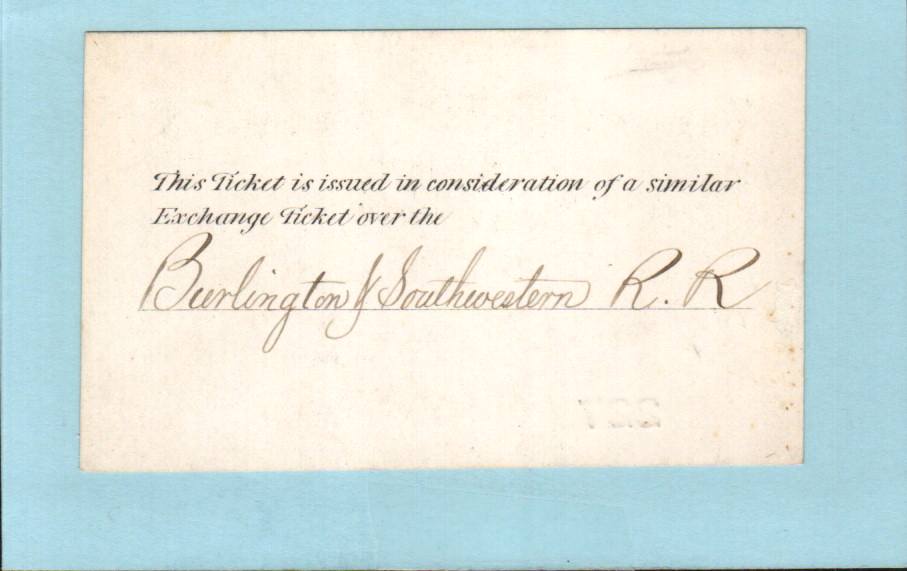 This Ticket is issued in consideration of a similar
Exchange Ticket over the
Burlington & Southwestern R. R